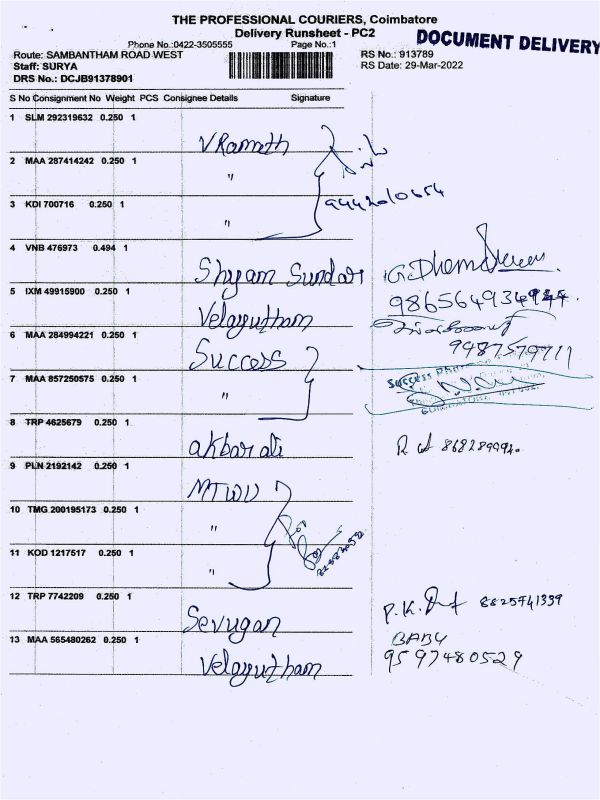 THE PROFESSIONAL COURIERS, Coimbatore
Delivery Runsheet - PC2
DOCUMENT DELIVERY
Phone No.:0422-3505555 Page No.:1
Route: SAMBANTHAM ROAD WEST RS No.: 913789
Staff: SURYA RS Date: 29-Mar-2022
DRS No.: DCJB91378901
S No Consignment No Weight PCS Consignee Details Signature
1 SLM 292319632 0.250 1
V Ramesh
2 MAA 287414242 0.250 1
"
3 KDI 700716 0.250 1
"
4 VNB 476973 0.494 1
Shyam Sundar
5 IXM 49915900 0.250 1
Velayutham
9487579711
6 MAA 284994221 0.250 1
Success
7 MAA 857250575 0.250 1
"
Success
8 TRP 4625679 0.250 1
akbar ali
9 PLN 2192142 0.250 1
MTWU
10 TMG 200195173 0.250 1
"
11 KOD 1217517 0.250 1
"
12 TRP 7742209 0.250 1
Sevugan
P.K. 8825741339
13 MAA 565480262 0.250 1
Velayutham
BABU
9597480529